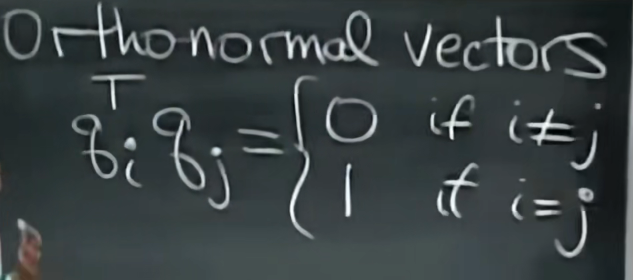 Orthonormal vectors
qᵢᵀqⱼ = { 0 if i≠j
1 if i=j